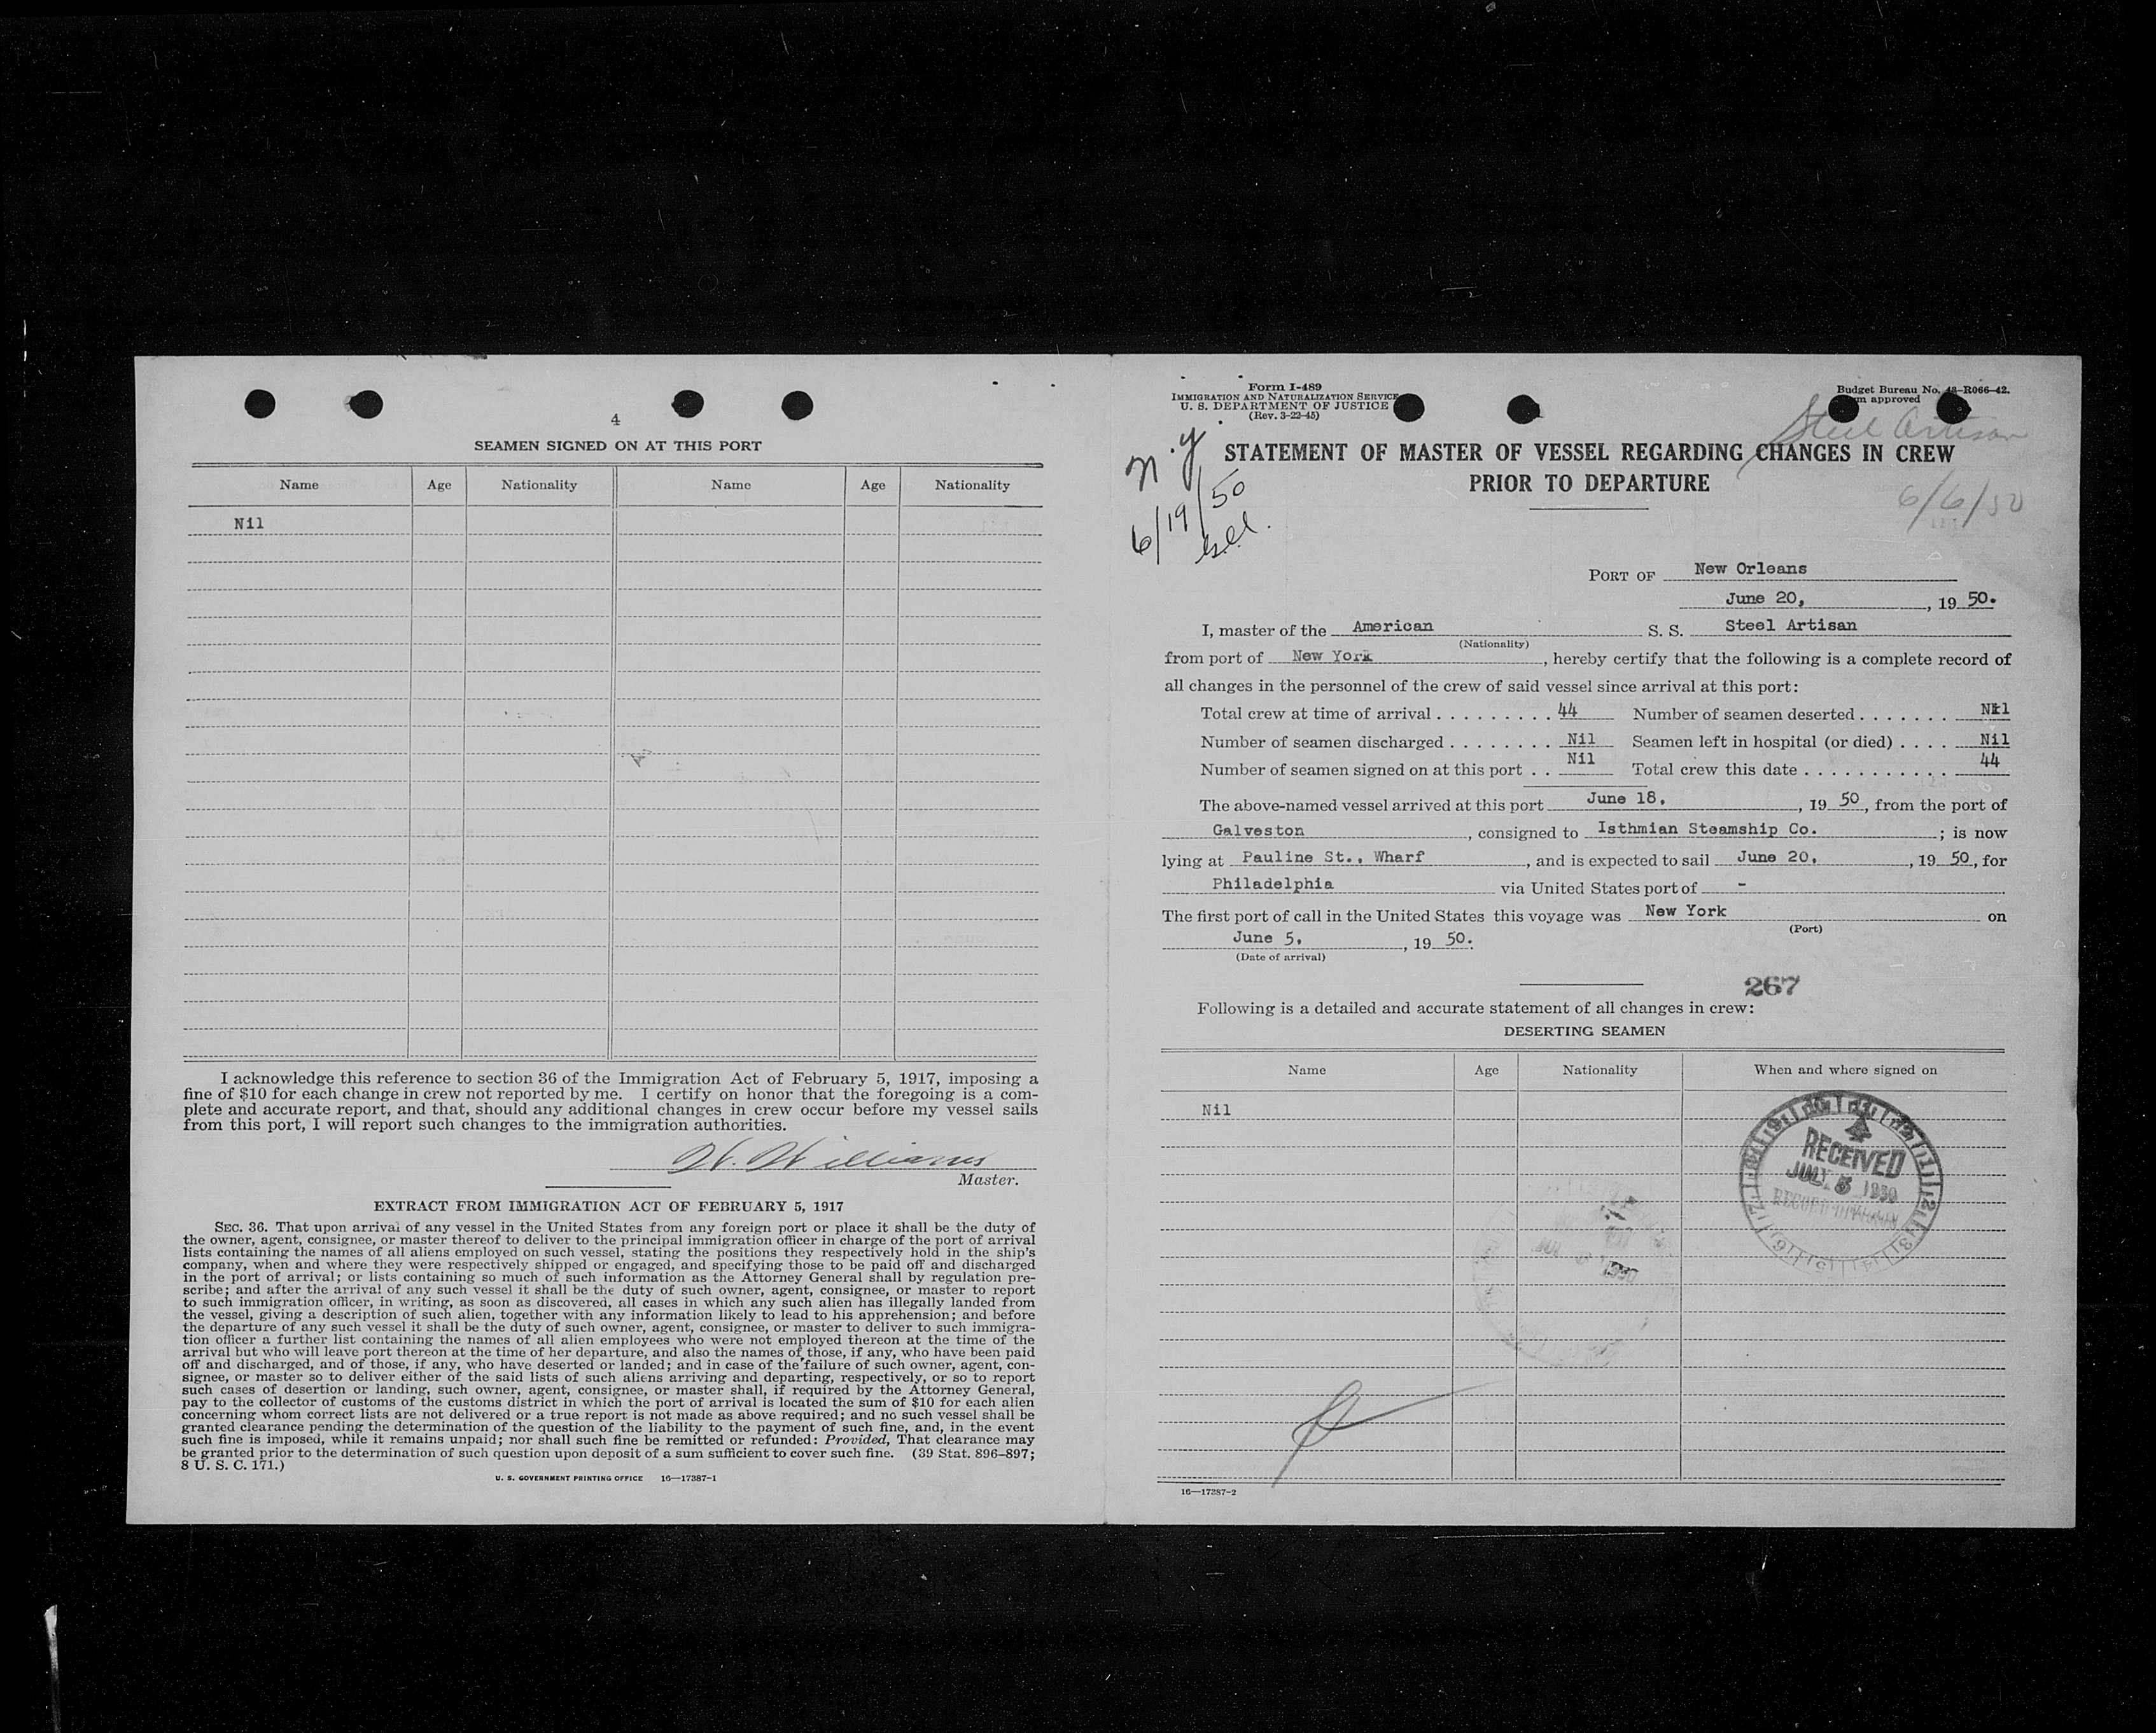 4
SEAMEN SIGNED ON AT THIS PORT
Name Age Nationality Name Age Nationality
Nil
I acknowledge this reference to section 36 of the Immigration Act of February 5, 1917, imposing a
fine of $10 for each change in crew not reported by me. I certify on honor that the foregoing is a com-
plete and accurate report, and that, should any additional changes in crew occur before my vessel sails
from this port, I will report such changes to the immigration authorities.
W. Williams
Master.
EXTRACT FROM IMMIGRATION ACT OF FEBRUARY 5, 1917
SEC. 36. That upon arrival of any vessel in the United States from any foreign port or place it shall be the duty of
the owner, agent, consignee, or master thereof to deliver to the principal immigration officer in charge of the port of arrival
lists containing the names of all aliens employed on such vessel, stating the positions they respectively hold in the ship's
company, when and where they were respectively shipped or engaged, and specifying those to be paid off and discharged
in the port of arrival; or lists containing so much of such information as the Attorney General shall by regulation pre-
scribe; and after the arrival of any such vessel it shall be the duty of such owner, agent, consignee, or master to report
to such immigration officer, in writing, as soon as discovered, all cases in which any such alien has illegally landed from
the vessel, giving a description of such alien, together with any information likely to lead to his apprehension; and before
the departure of any such vessel it shall be the duty of such owner, agent, consignee, or master to deliver to such immigra-
tion officer a further list containing the names of all alien employees who were not employed thereon at the time of the
arrival but who will leave port thereon at the time of her departure, and also the names of those, if any, who have been paid
off and discharged, and of those, if any, who have deserted or landed; and in case of the failure of such owner, agent, con-
signee, or master so to deliver either of the said lists of such aliens arriving and departing, respectively, or so to report
such cases of desertion or landing, such owner, agent, consignee, or master shall, if required by the Attorney General,
pay to the collector of customs of the customs district in which the port of arrival is located the sum of $10 for each alien
concerning whom correct lists are not delivered or a true report is not made as above required; and no such vessel shall be
granted clearance pending the determination of the question of the liability to the payment of such fine, and, in the event
such fine is imposed, while it remains unpaid; nor shall such fine be remitted or refunded: Provided, That clearance may
be granted prior to the determination of such question upon deposit of a sum sufficient to cover such fine. (39 Stat. 896–897;
8 U. S. C. 171.)
U. S. GOVERNMENT PRINTING OFFICE 16—17387-1
Form I-489
IMMIGRATION AND NATURALIZATION SERVICE
U. S. DEPARTMENT OF JUSTICE
(Rev. 3-22-45)
Budget Bureau No. 43-R066-42.
approved
Steel Artisan
n.y
6/19/50
STATEMENT OF MASTER OF VESSEL REGARDING CHANGES IN CREW
PRIOR TO DEPARTURE
6/6/50
PORT OF New Orleans
June 20, , 19 50.
I, master of the American S. S. Steel Artisan
(Nationality)
from port of New York , hereby certify that the following is a complete record of
all changes in the personnel of the crew of said vessel since arrival at this port:
Total crew at time of arrival . . . . . . . . . 44 Number of seamen deserted . . . . . . . Nil
Number of seamen discharged . . . . . . . . Nil Seamen left in hospital (or died) . . . . Nil
Number of seamen signed on at this port . . Nil Total crew this date . . . . . . . . . . . 44
The above-named vessel arrived at this port June 18, , 19 50, from the port of
Galveston , consigned to Isthmian Steamship Co. ; is now
lying at Pauline St., Wharf , and is expected to sail June 20, , 19 50, for
Philadelphia via United States port of -
The first port of call in the United States this voyage was New York on
(Port)
June 5, , 19 50.
(Date of arrival)
267
Following is a detailed and accurate statement of all changes in crew:
DESERTING SEAMEN
Name Age Nationality When and where signed on
Nil
RECEIVED
JUL 5 1950
RECORD DIVISION
16—17387-2